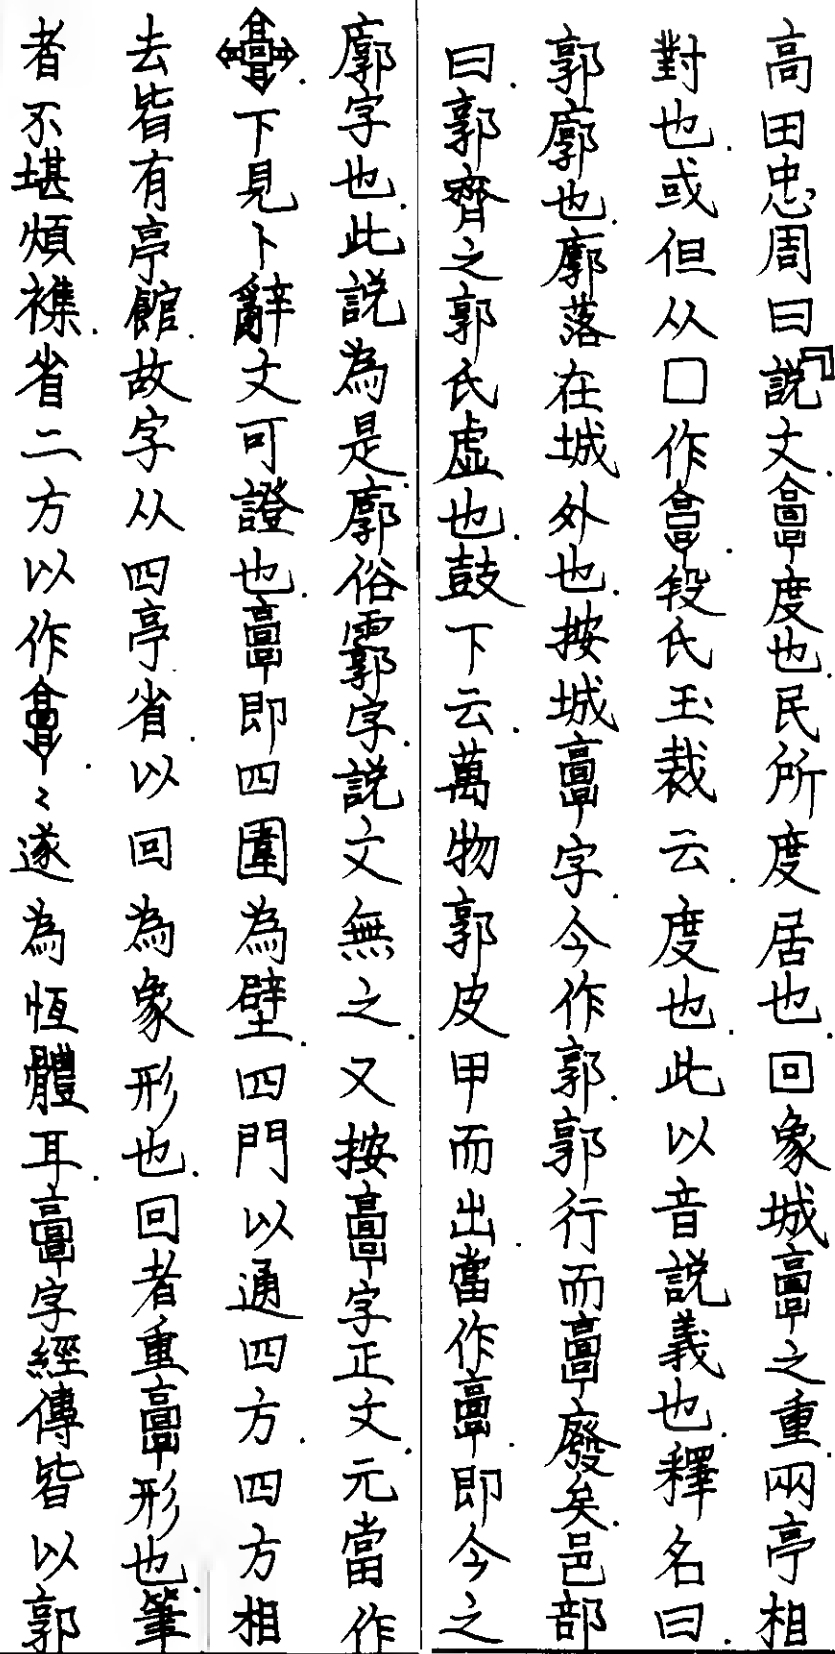 高田忠周曰『説文.𩫏度也.民所度居也.回象城𩫏之重兩亭相
對也.或但从囗作.段氏玉裁云.度也.此以音説義也.釋名曰.
郭廓也.廓落在城外也.按城𩫏字.今作郭.郭行而𩫏廢矣.邑部
曰.郭齊之郭氏虚也.鼓下云.萬物郭皮甲而出.當作𩫏.即今之
廓字也.此説為是.廓俗霩字.説文無之.又按𩫏字正文.元當作
.下見卜辭文可證也.𩫏即四圍為壁.四門以通四方.四方相
去皆有亭館.故字从四亭省.以回為象形也.回者重𩫏形也.筆
者不堪煩襍.省二方以作.〻遂為恆體耳.𩫏字經傳皆以郭